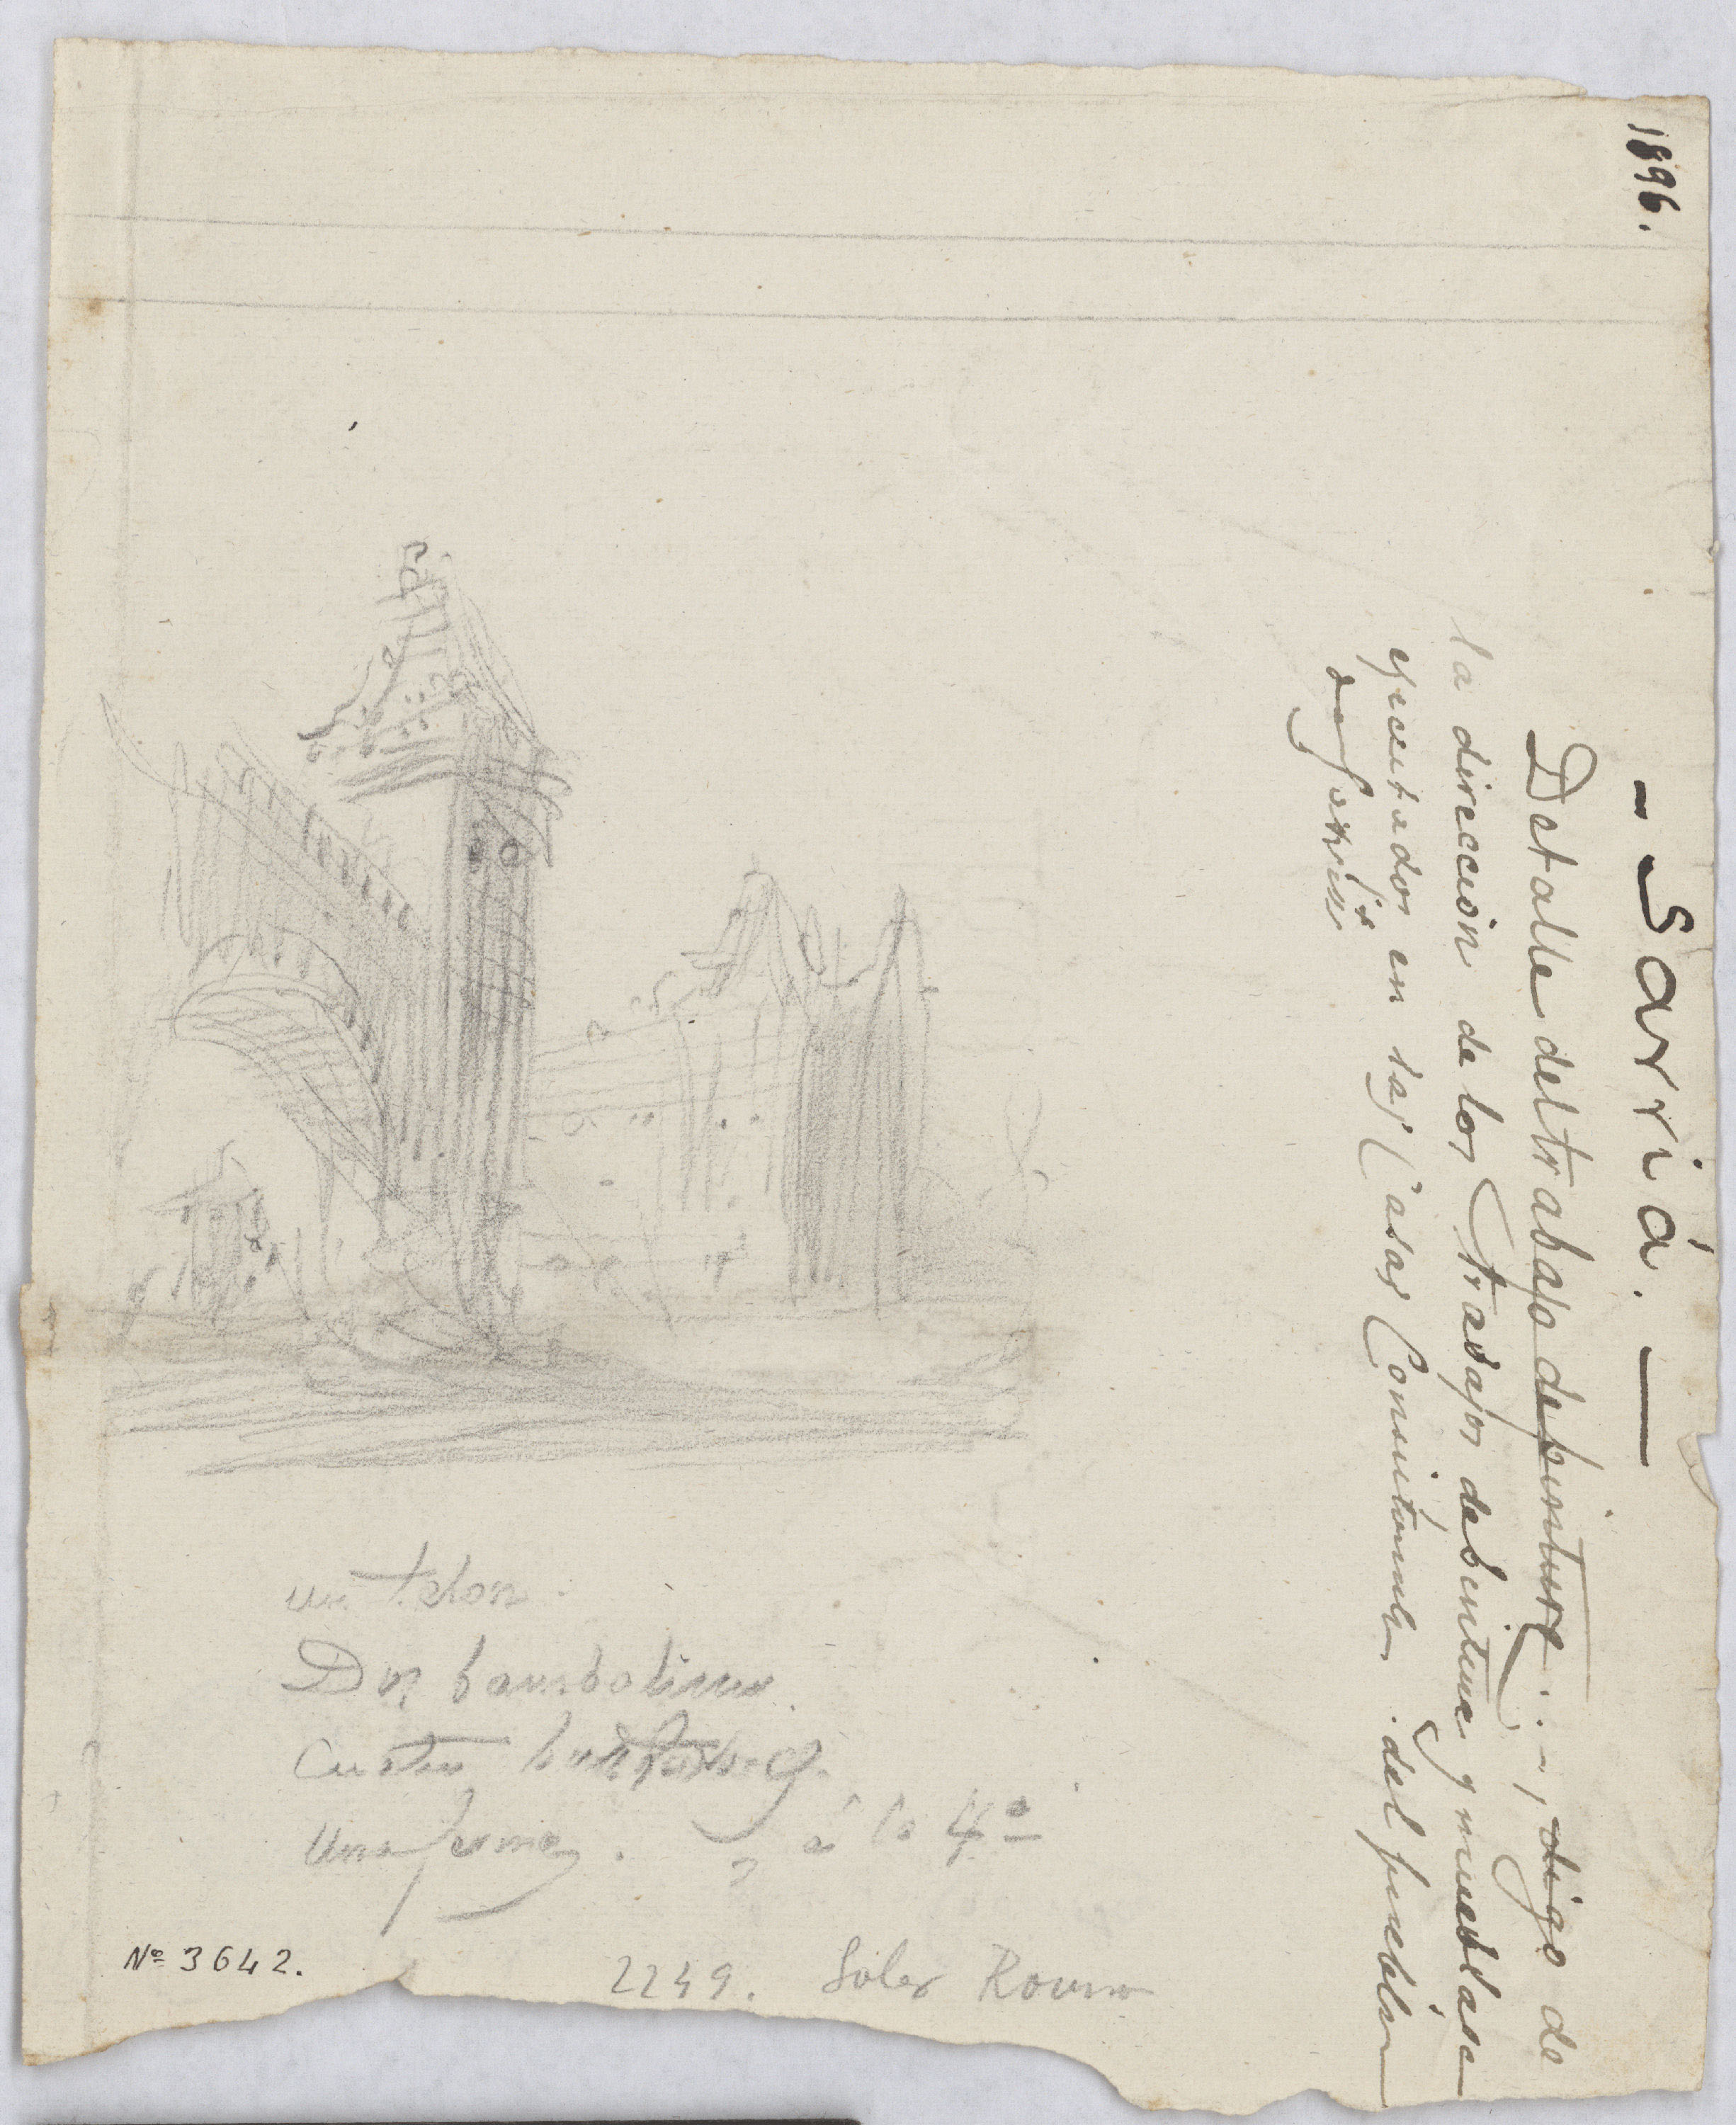 1896.
- Sarriá. -
Detalle del trabajo de pintura . . - , digo de
la direccion de los trabajos de pintura y mueblase
ejecutados en las Casas Consistoriales . del pueblo
de Sarriá
un telon.
Dos bambalinas.
Cuatro
Una ferma. á la 4ª
Nº 3642.
2249. Soler Rovirosa